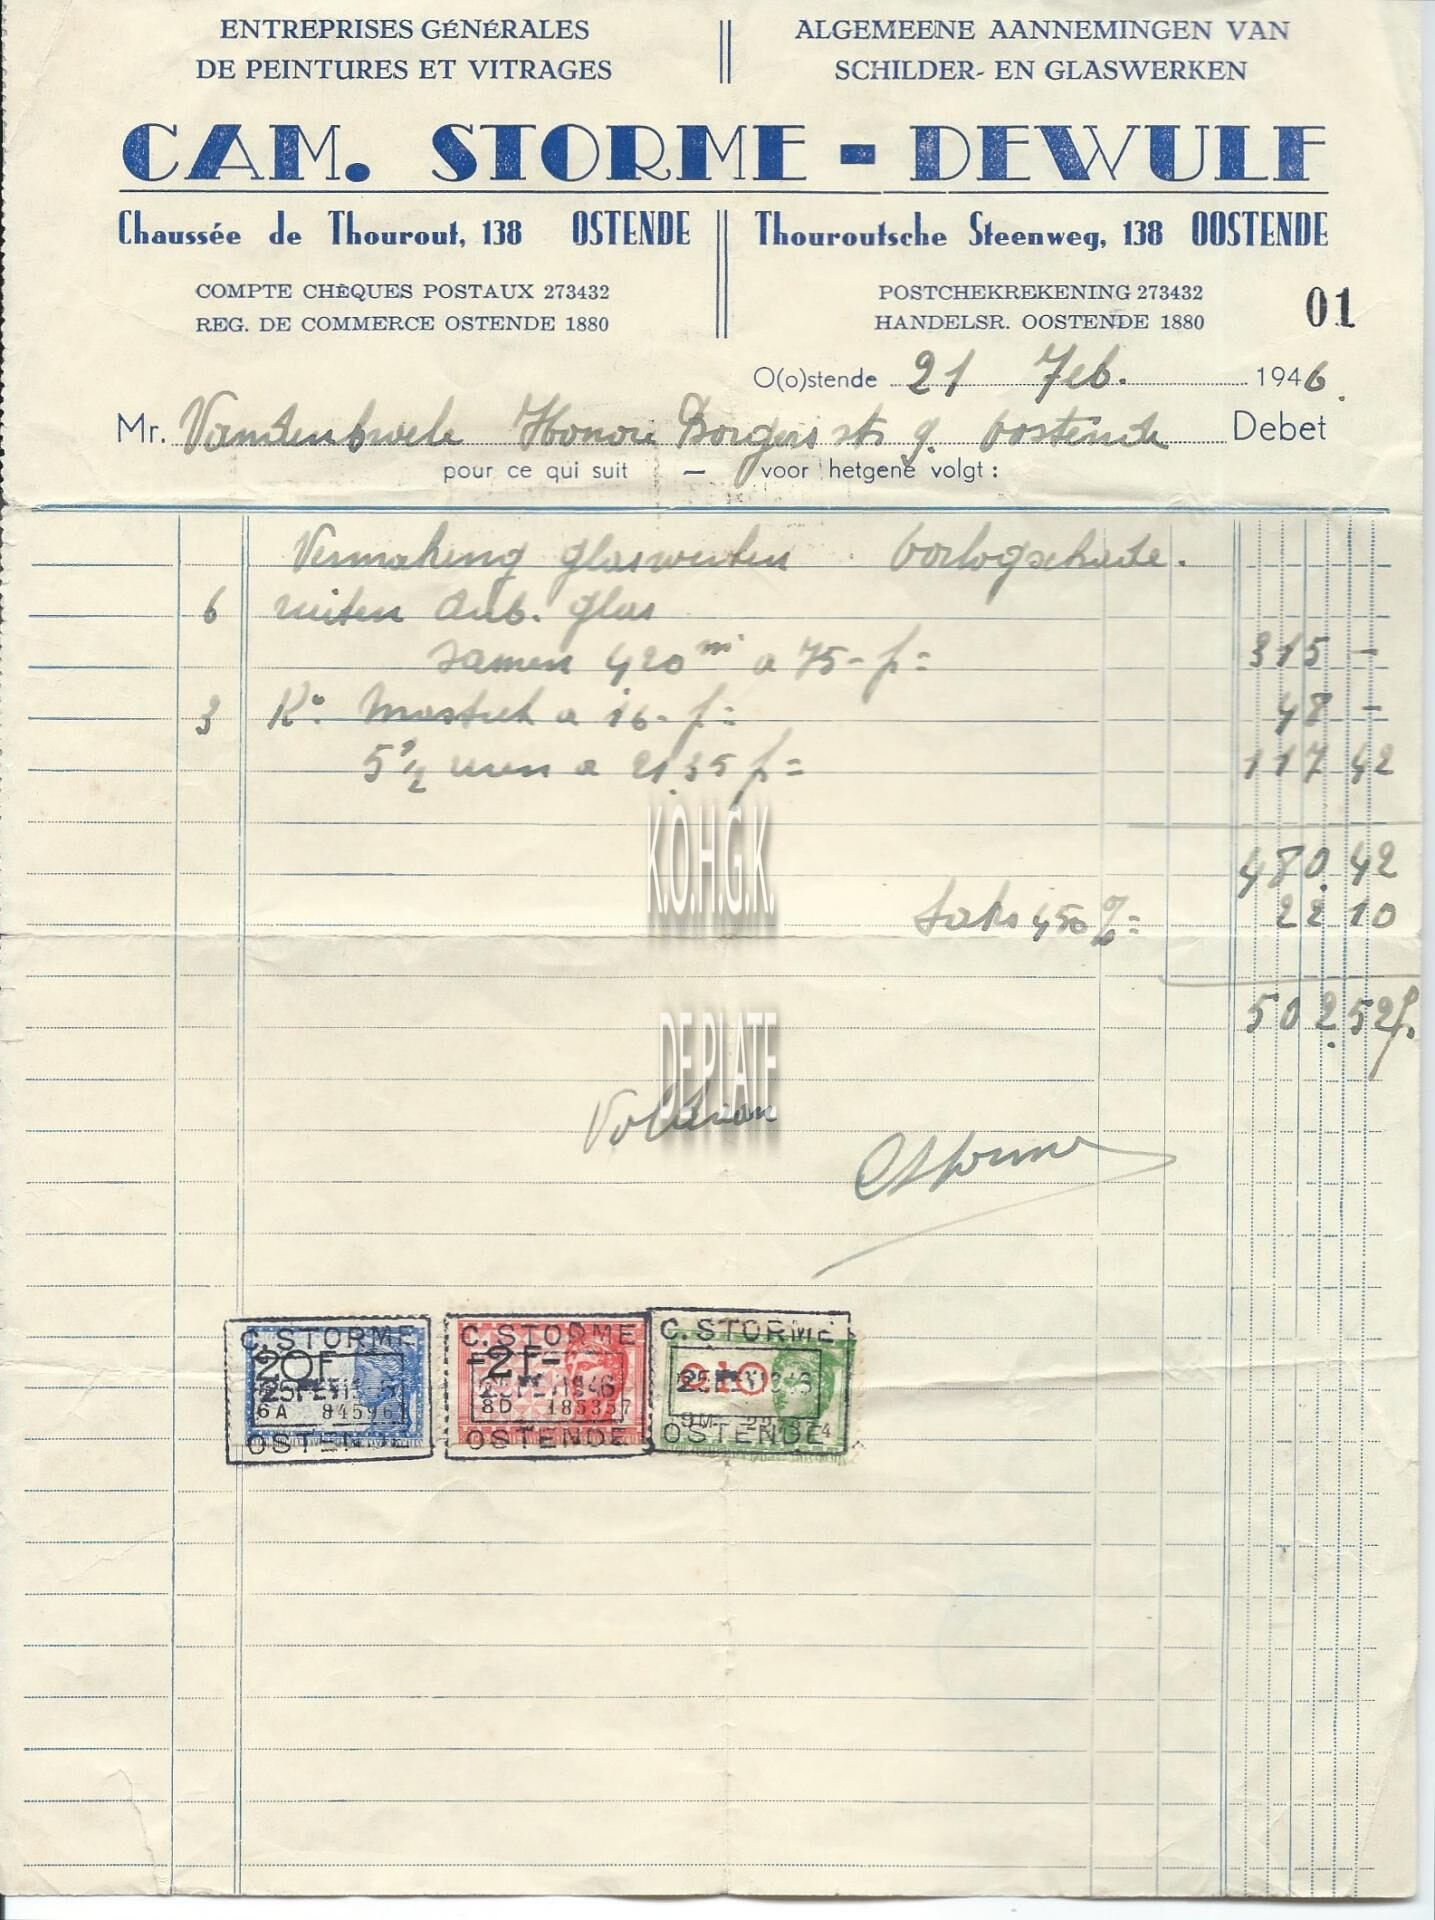 ENTREPRISES GÉNÉRALES
DE PEINTURES ET VITRAGES
ALGEMEENE AANNEMINGEN VAN
SCHILDER- EN GLASWERKEN
CAM. STORME - DEWULF
Chaussée de Thourout, 138 OSTENDE
Thouroutsche Steenweg, 138 OOSTENDE
COMPTE CHÈQUES POSTAUX 273432
REG. DE COMMERCE OSTENDE 1880
POSTCHEKREKENING 273432
HANDELSR. OOSTENDE 1880
01
O(o)stende 21 Feb. 1946.
Mr. Honoré 9. Oostende Debet
pour ce qui suit – voor hetgene volgt :
Vermaking glaswerken. Oorlogschade.
6 ruiten dub. glas
samen 420 m a 75- f = 315 -
3 K° Mastiek a 16- f = 48 -
5 1/2 uren a 21.35 f = 117 42
480.42
Taks 4,50 % = 22 10
502.52 f.
K.O.H.G.K.
DE PLATE
Voldaan
CStorme
C. STORME
20F
25 FEV 1946
6A 84596
OSTENDE
C. STORME
-2F-
25 FEV 1946
8D 185357
OSTENDE
C. STORME
0.10
25 FEV 1946
OSTENDE